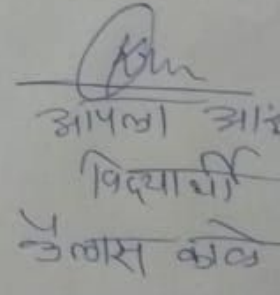 आपला
विद्यार्थी
कैलास काळे